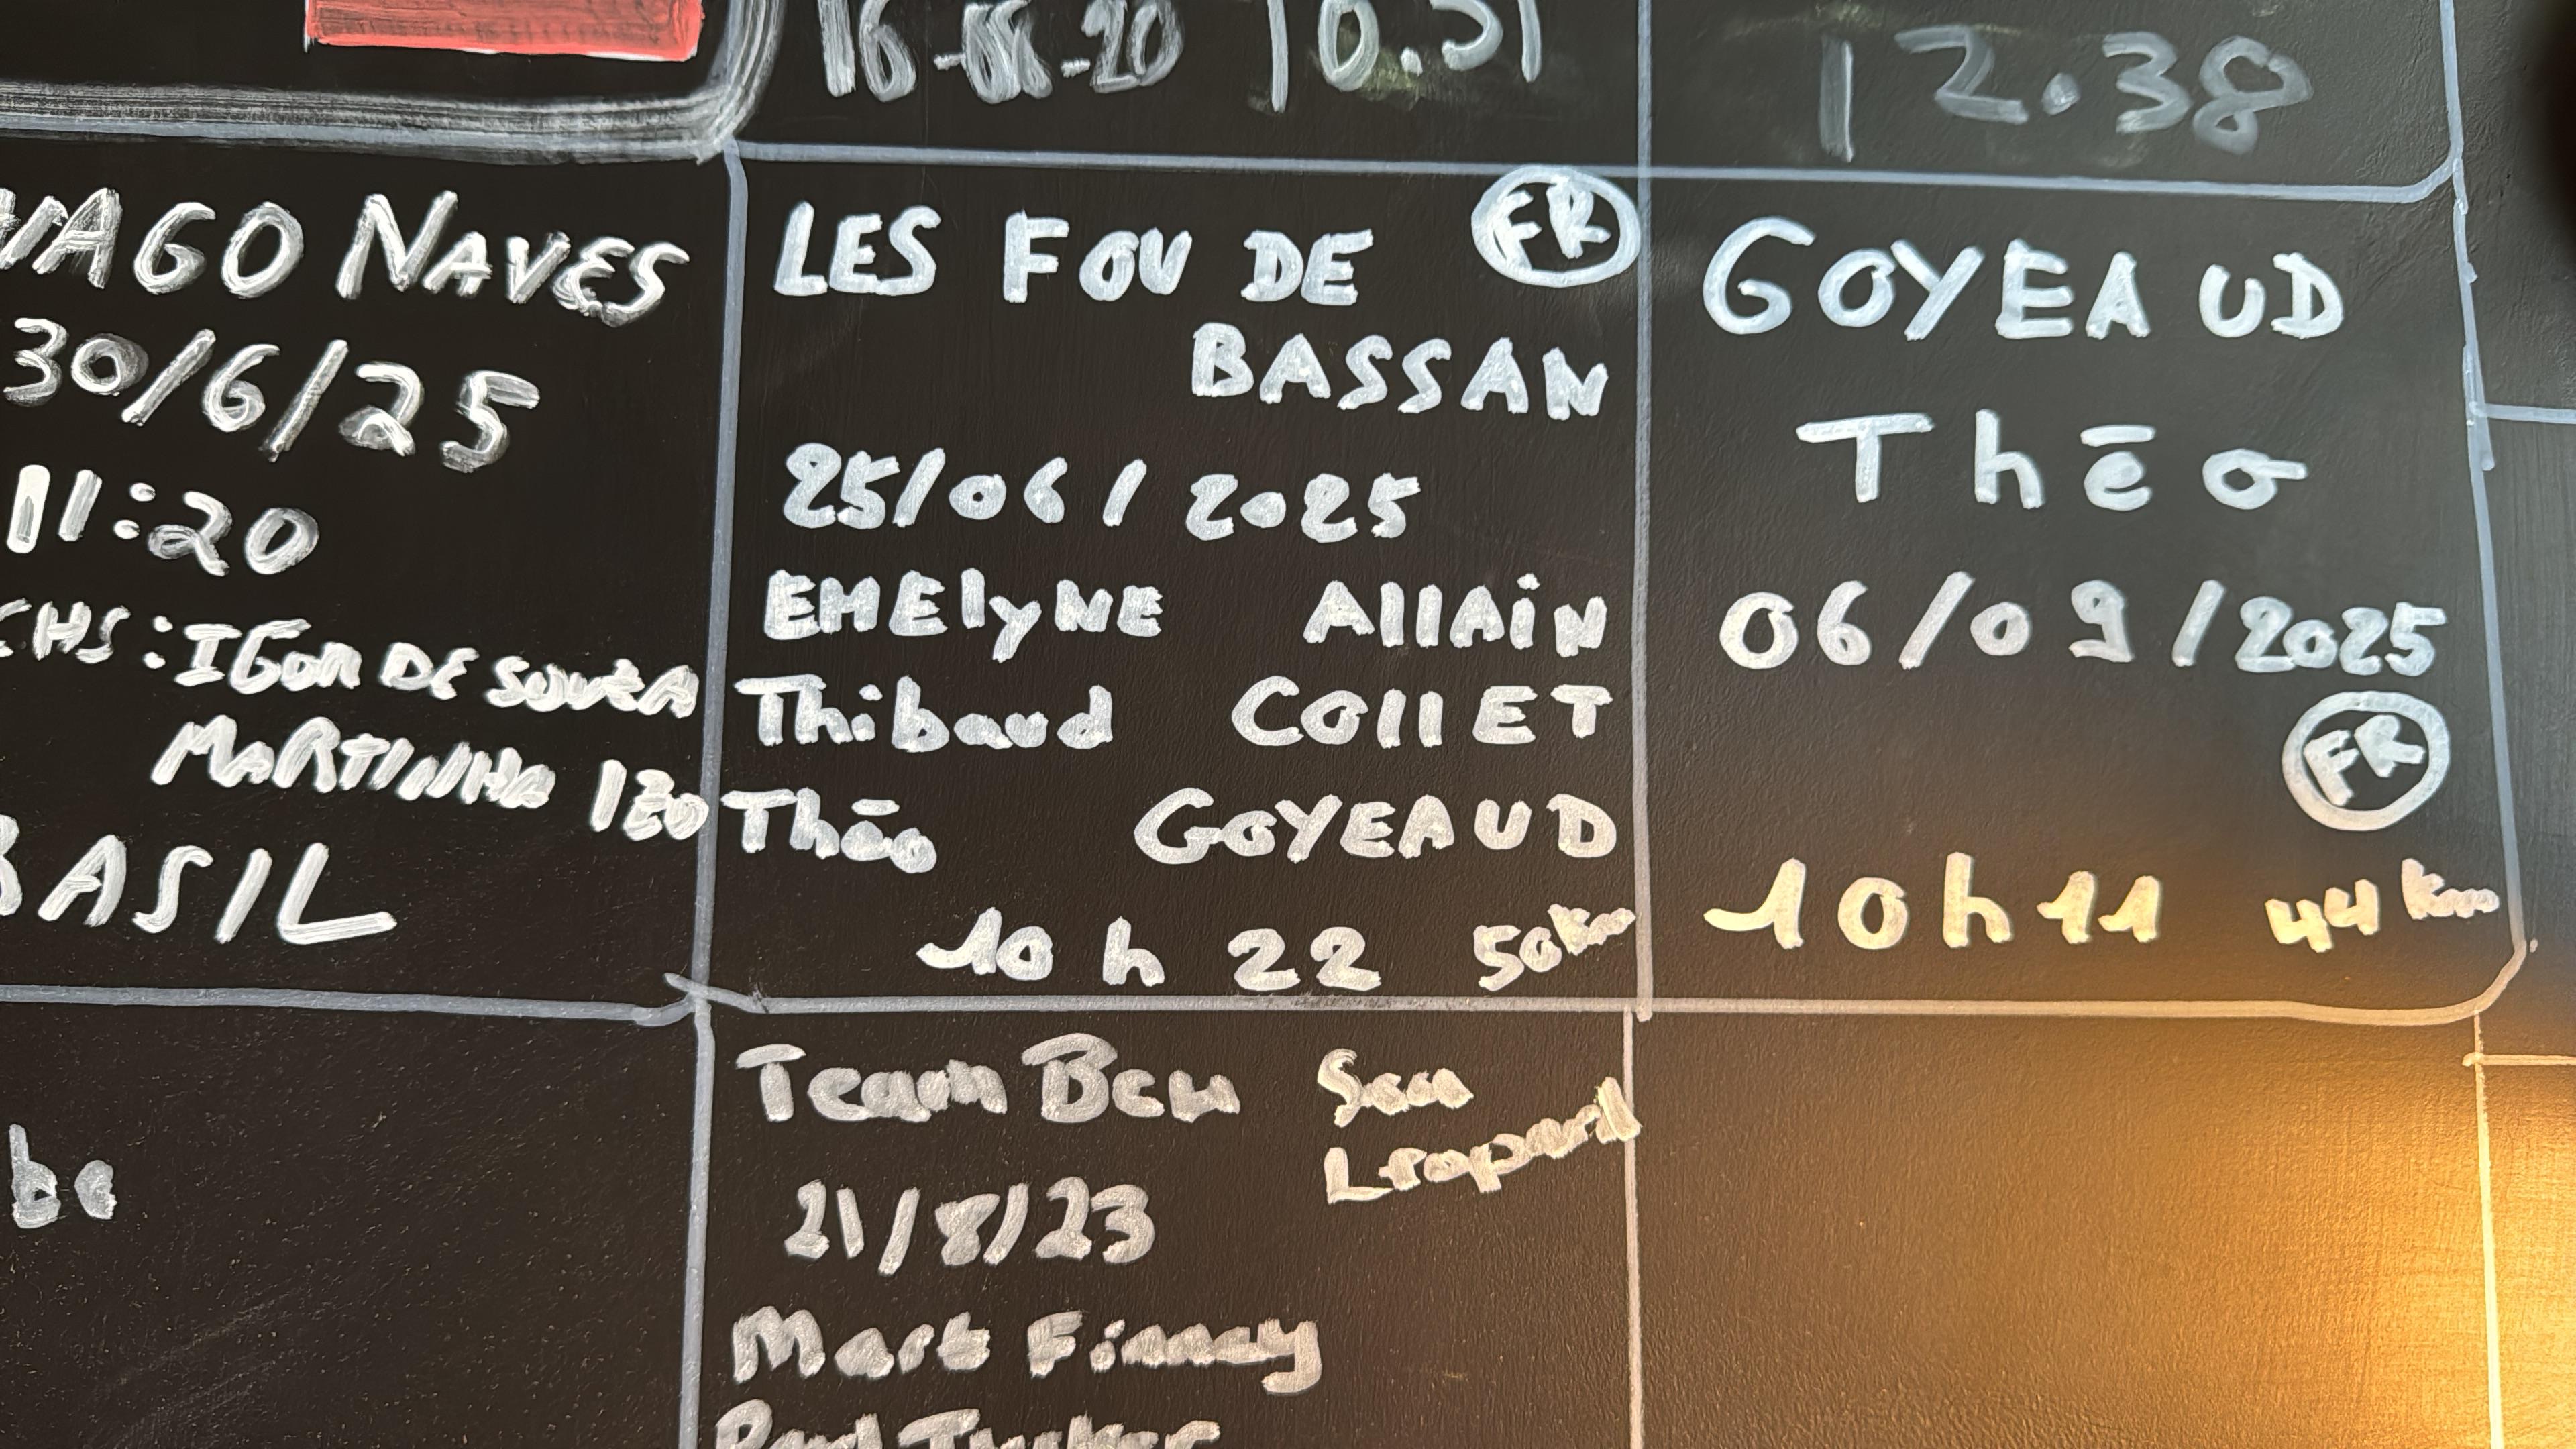 16-08-20 10.51
12.38
NAVES
30/6/25
11:20
CHS: IGOR DE SOUZA
MARTINHO IZO
BASIL
LES FOU DE FR
BASSAN
25/06/2025
EMElyNE AllAiN
Thibaud COllET
Théo GOYEAUD
10 h 22 50 Km
GOYEAUD
Théo
06/09/2025
FR
10 h 11 44 Km
be
Team Bew Sea
Leopard
21/8/23
Mark Finney
Paul Tucker